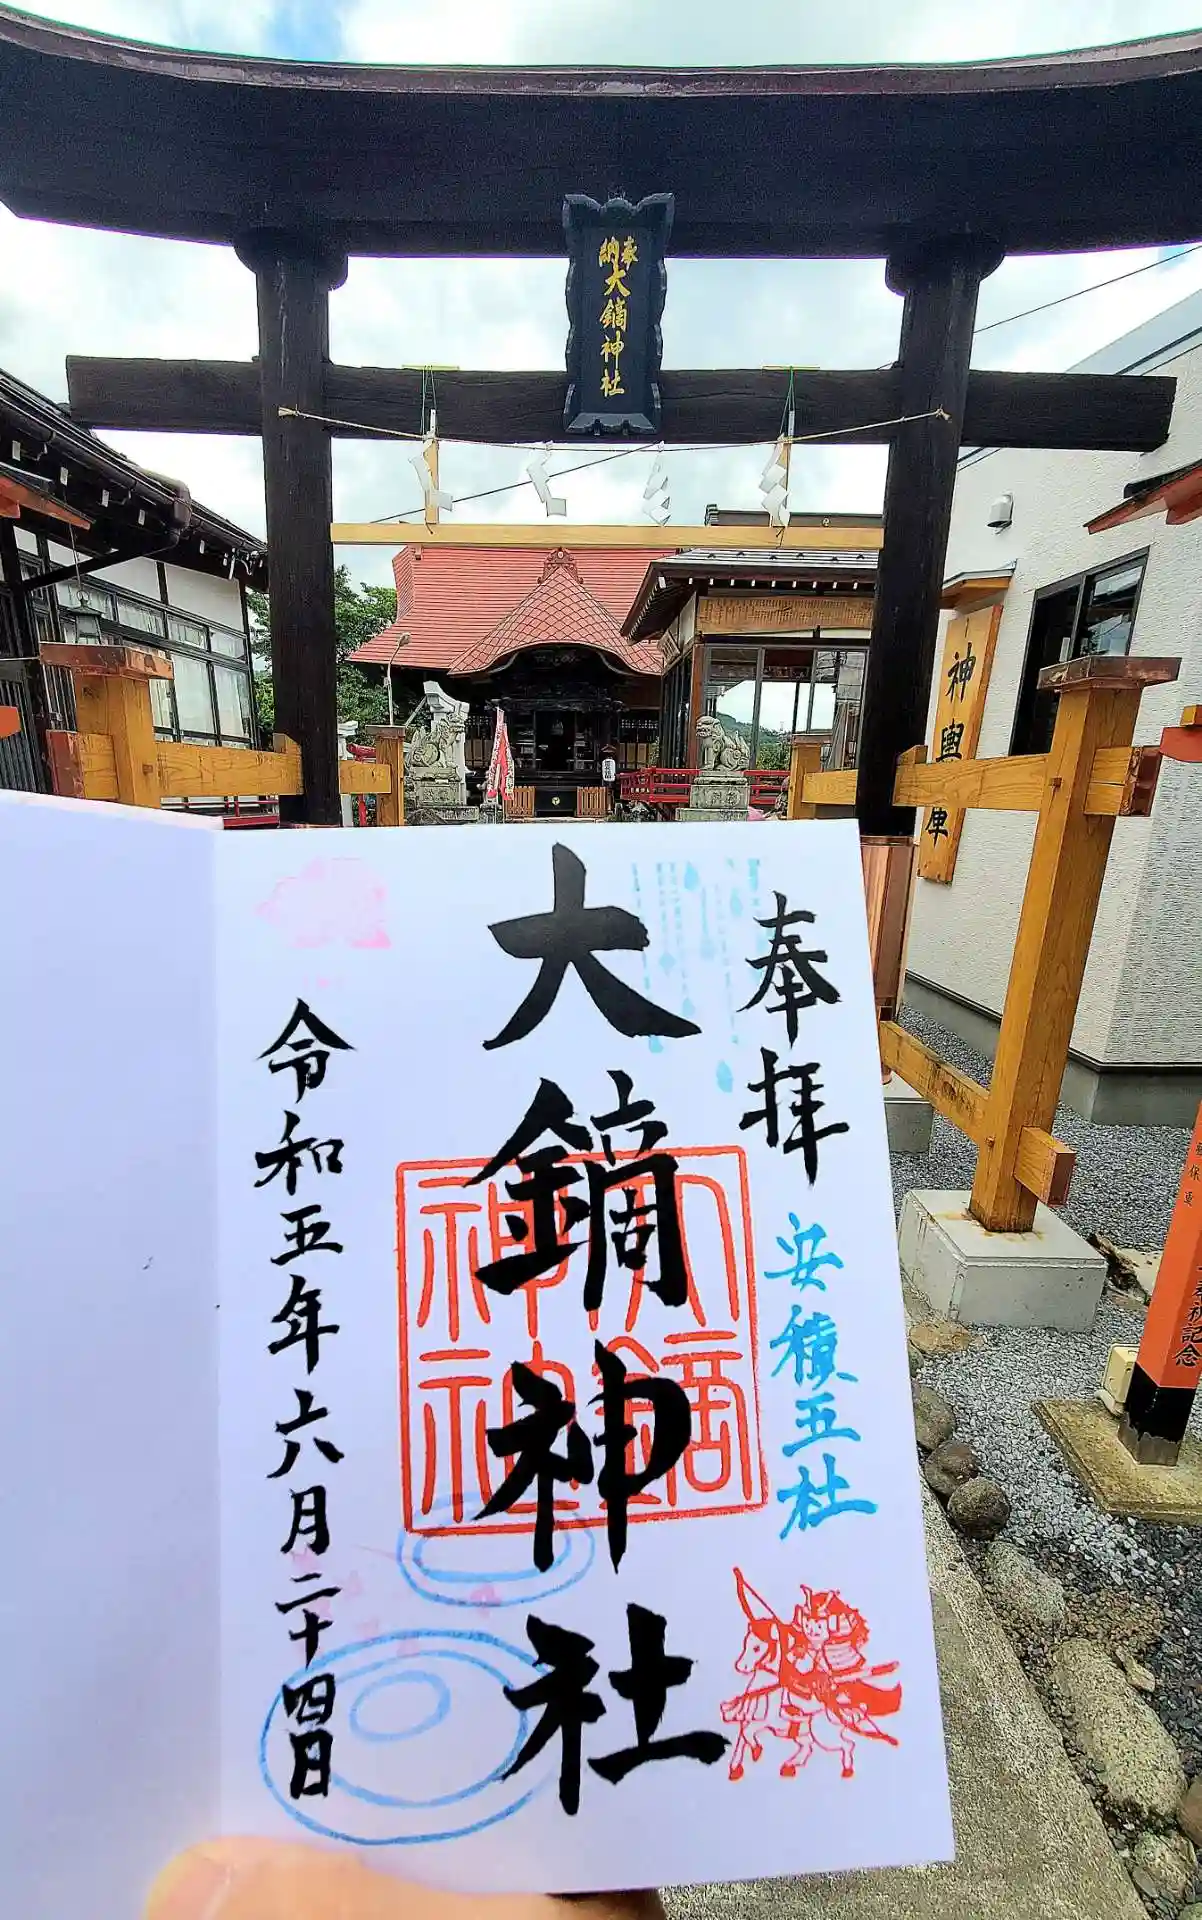 奉納
大鏑神社
神輿庫
奉拝
安積五社
大鏑神社
大鏑神社
令和五年六月二十四日
記念